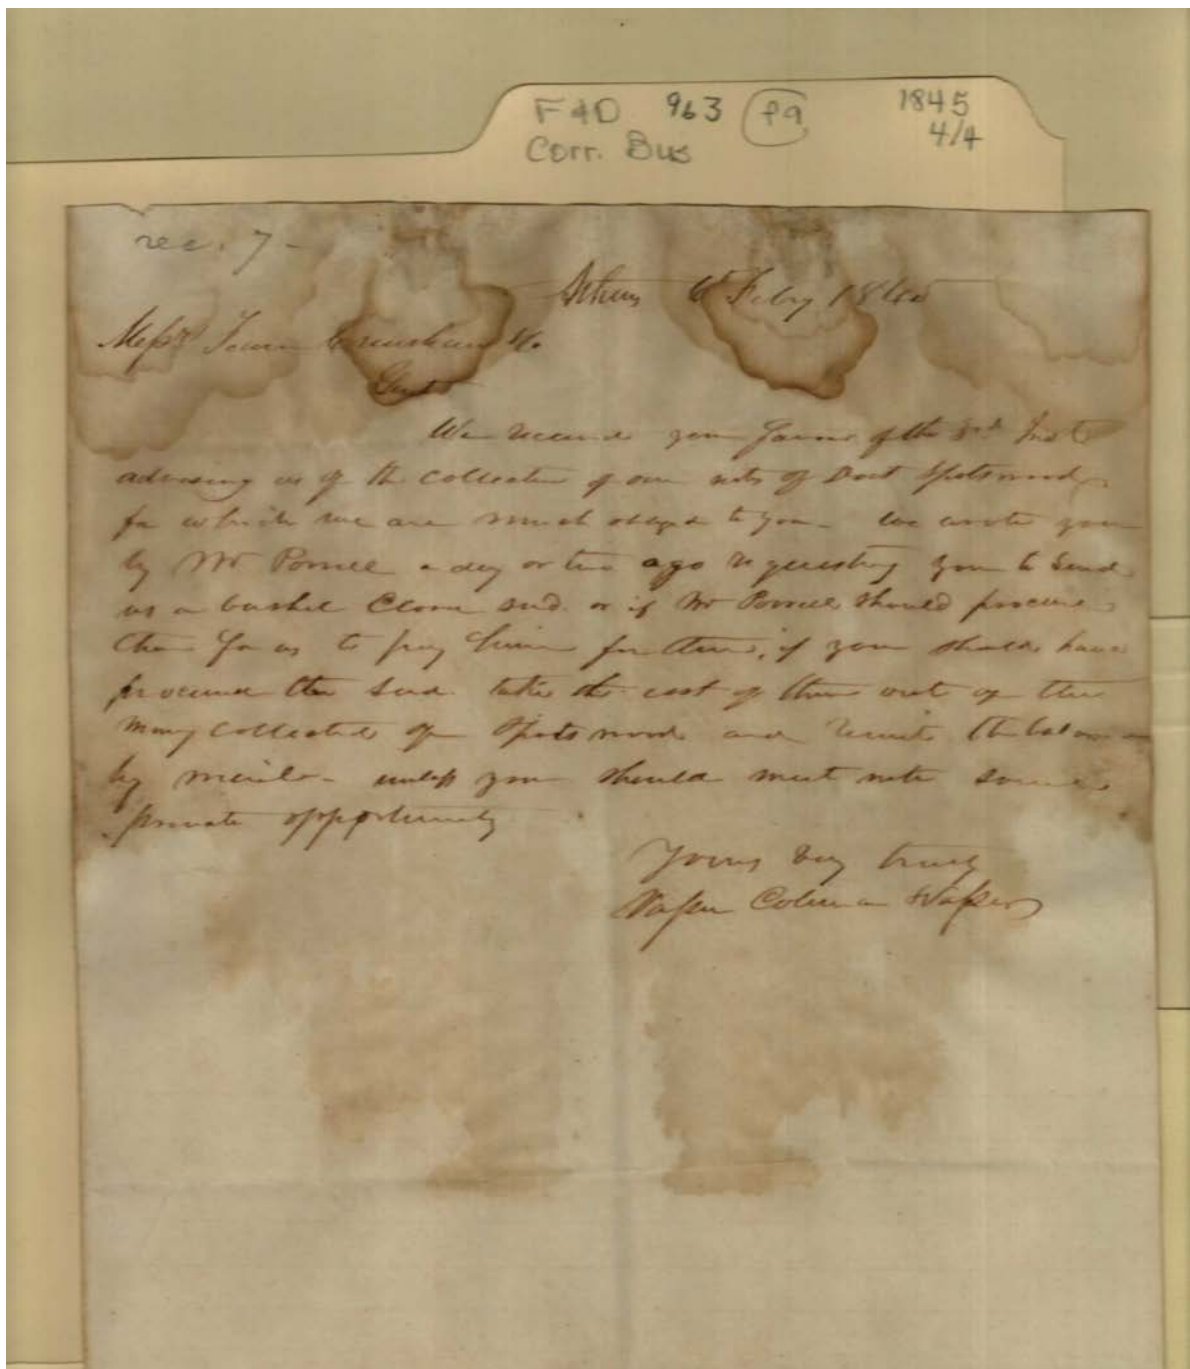 F & D 963 P9 1845
Corr. Bus 4/4
rec. 7 -
Athens 6th Feby 1845
Messrs Fearn & Co.
Gents
We received your favor of the 3rd Inst
advising us of the collection of our note of Doct Spotswood
for which we are much obliged to you - We wrote you
by Mr a day or two ago requesting you to send
us a bushel Clover seed or if Mr should procure
them for us to pay him for them, if you should have
procured the seed take the cost of them out of the
money collected of Spotswood and remit the balance
by mail - unless you should meet with some
private opportunity
Yours very truly
Vasser Coleman Vasser